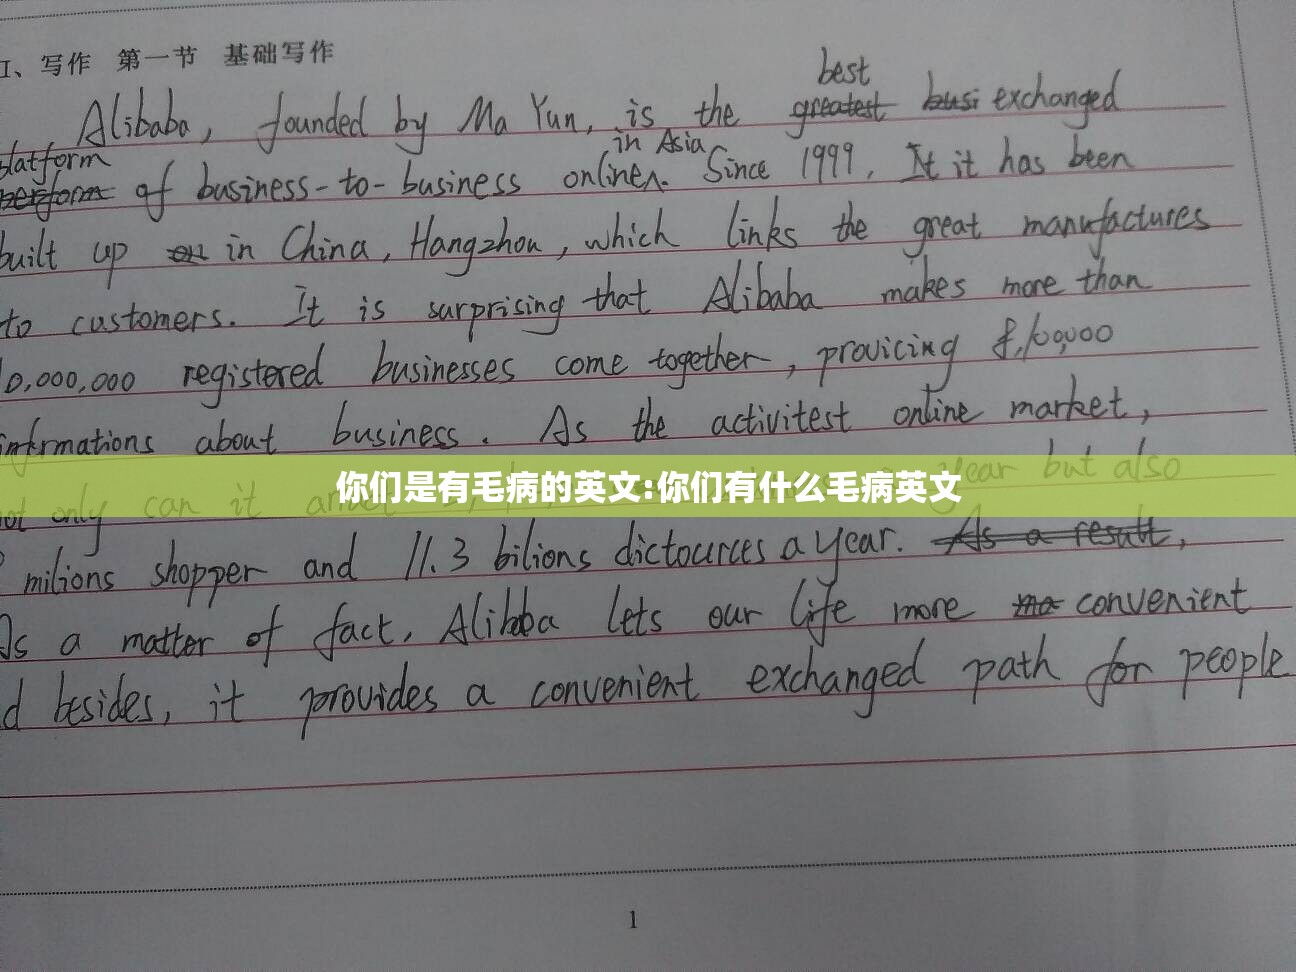 I、写作 第一节 基础写作
best
Alibaba, founded by Ma Yun, is the greatest busi exchanged
platform in Asia
of business-to-business online. Since 1999, It it has been
built up on in China, Hangzhou, which links the great manufactures
to customers. It is surprising that Alibaba makes more than
0,000,000 registered businesses come together, provicing
infrmations about business. As the activitest online market,
not only can it year but also
你们是有毛病的英文:你们有什么毛病英文
milions shopper and 11.3 bilions dictources a year. As a result,
As a matter of fact, Alibaba lets our life more convenient
d besides, it provides a convenient exchanged path for people
1